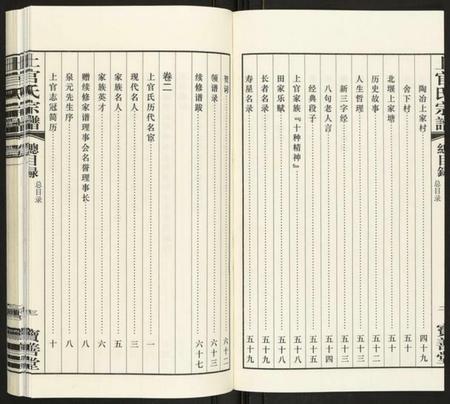 上官氏宗譜
總目錄
总目录
二
寶善堂
陶冶上家村 四十九
舍下村 五十
北堰上家塘 五十一
历史故事 五十二
人生哲理 五十三
新三字经 五十三
八句老人言 五十四
经典段子 五十四
上官家族『十种精神』 五十五
田家乐赋 五十七
长者名录 五十九
寿星名录 五十九
赞词 六十二
领谱录 六十三
续修谱跋 六十七
卷二
上官氏历代名宦 一
现代名人 三
家族名人 五
家族英才 六
赠续修家谱理事会名誉理事长
泉元先生序 八
上官志冠简历 十
上官氏宗譜
總目錄
总目录
三
寶善堂